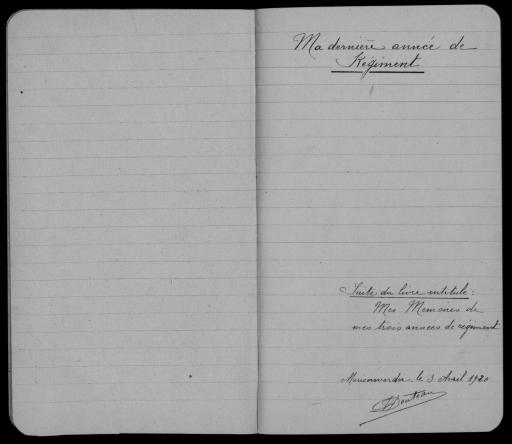 Ma dernière année de
Régiment
Suite du livre intitulé :
Mes Memoires de
mes trois annees de régiment
Marienwerder le 3 Avril 1920